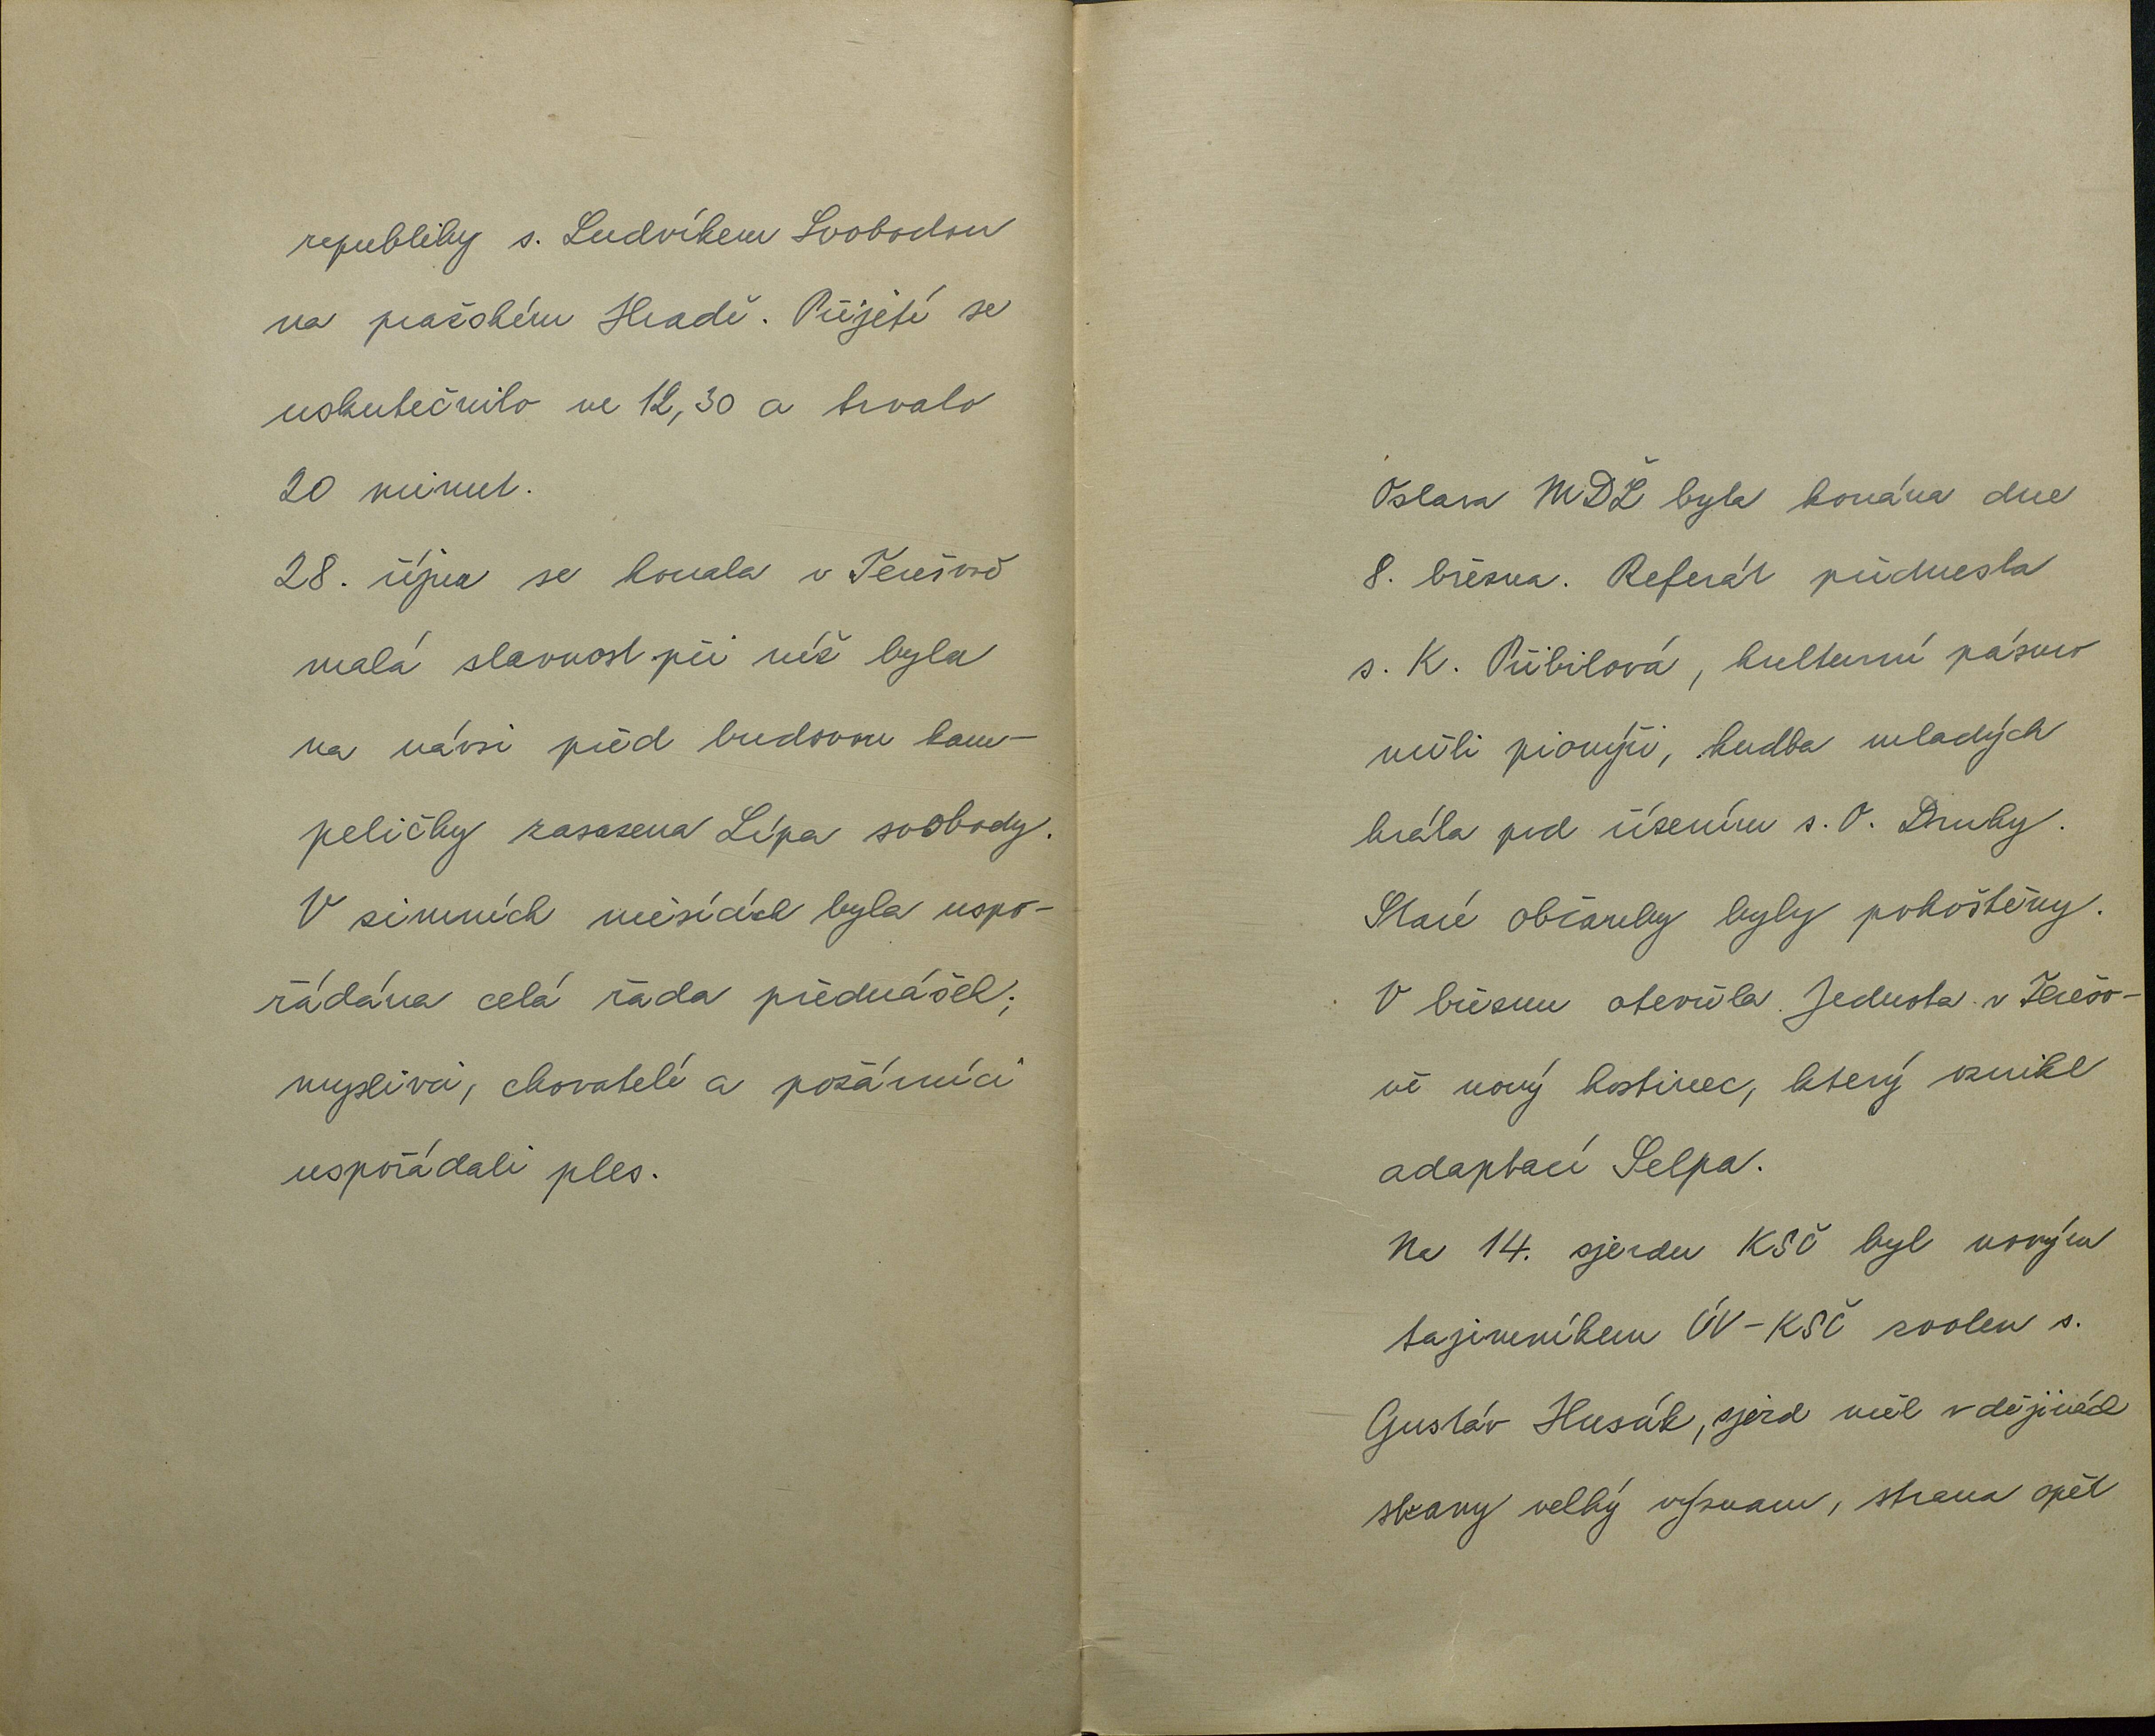 republiky s. Ludvíkem Svobodou
na pražském Hradě. Přijetí se
uskutečnilo ve 12,30 a trvalo
20 minut.
28. října se konala v Terešově
malá slavnost při níž byla
na návsi před budovou kam-
peličky zasazena Lípa svobody.
V zimních měsících byla uspo-
řádána celá řada přednášek;
myslivci, chovatelé a požárníci
uspořádali ples.
Oslava MDŽ byla konána dne
8. března. Referát přednesla
s. K. Přibilová, kulturní pásmo
měli pionýři, hudba mladých
hrála pod řízením s. O. Druhy.
Staré občanky byly pohoštěny.
V březnu otevřela Jednota v Terešo-
vě nový hostinec, který vznikl
adaptací Selpa.
Na 14. sjezdu KSČ byl novým
tajemníkem ÚV-KSČ zvolen s.
Gustáv Husák, sjezd měl v dějinách
strany velký význam, strana opět